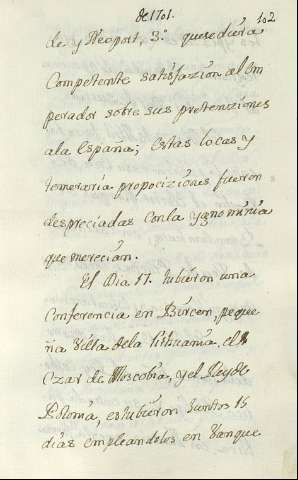 de 1701.
102
de y Neoport, 3.º que se diera
Competente satisfazion al Em
perador sobre sus pretenziones
a la España; estas locas y
temeraria propoziziones fueron
despreciadas con la ygnominia
que merecian.
El Dia 17. tubieron una
Conferencia en Bircen, peque
ña Villa dela Lithuania, el
Czar de Moscobia, y el Rey de
Polonia, estubieron Juntos 15
dias empleandolos en Vanque